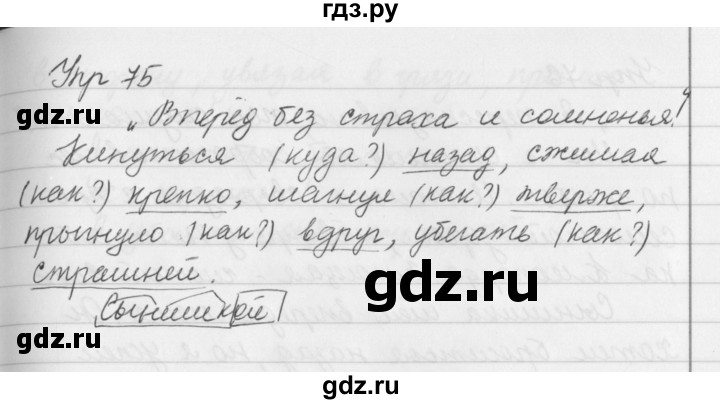 гдз.ру
Упр 75
gdz.ru
gdz.ru
„Вперёд без страха и сомненья!“
Кинуться (куда?) назад, сжимая
(как?) крепко, шагнул (как?) тверже,
прыгнуло (как?) вдруг, убегать (как?)
страшней.
gdz.ru
Сынишкой
gdz.ru
gdz.ru